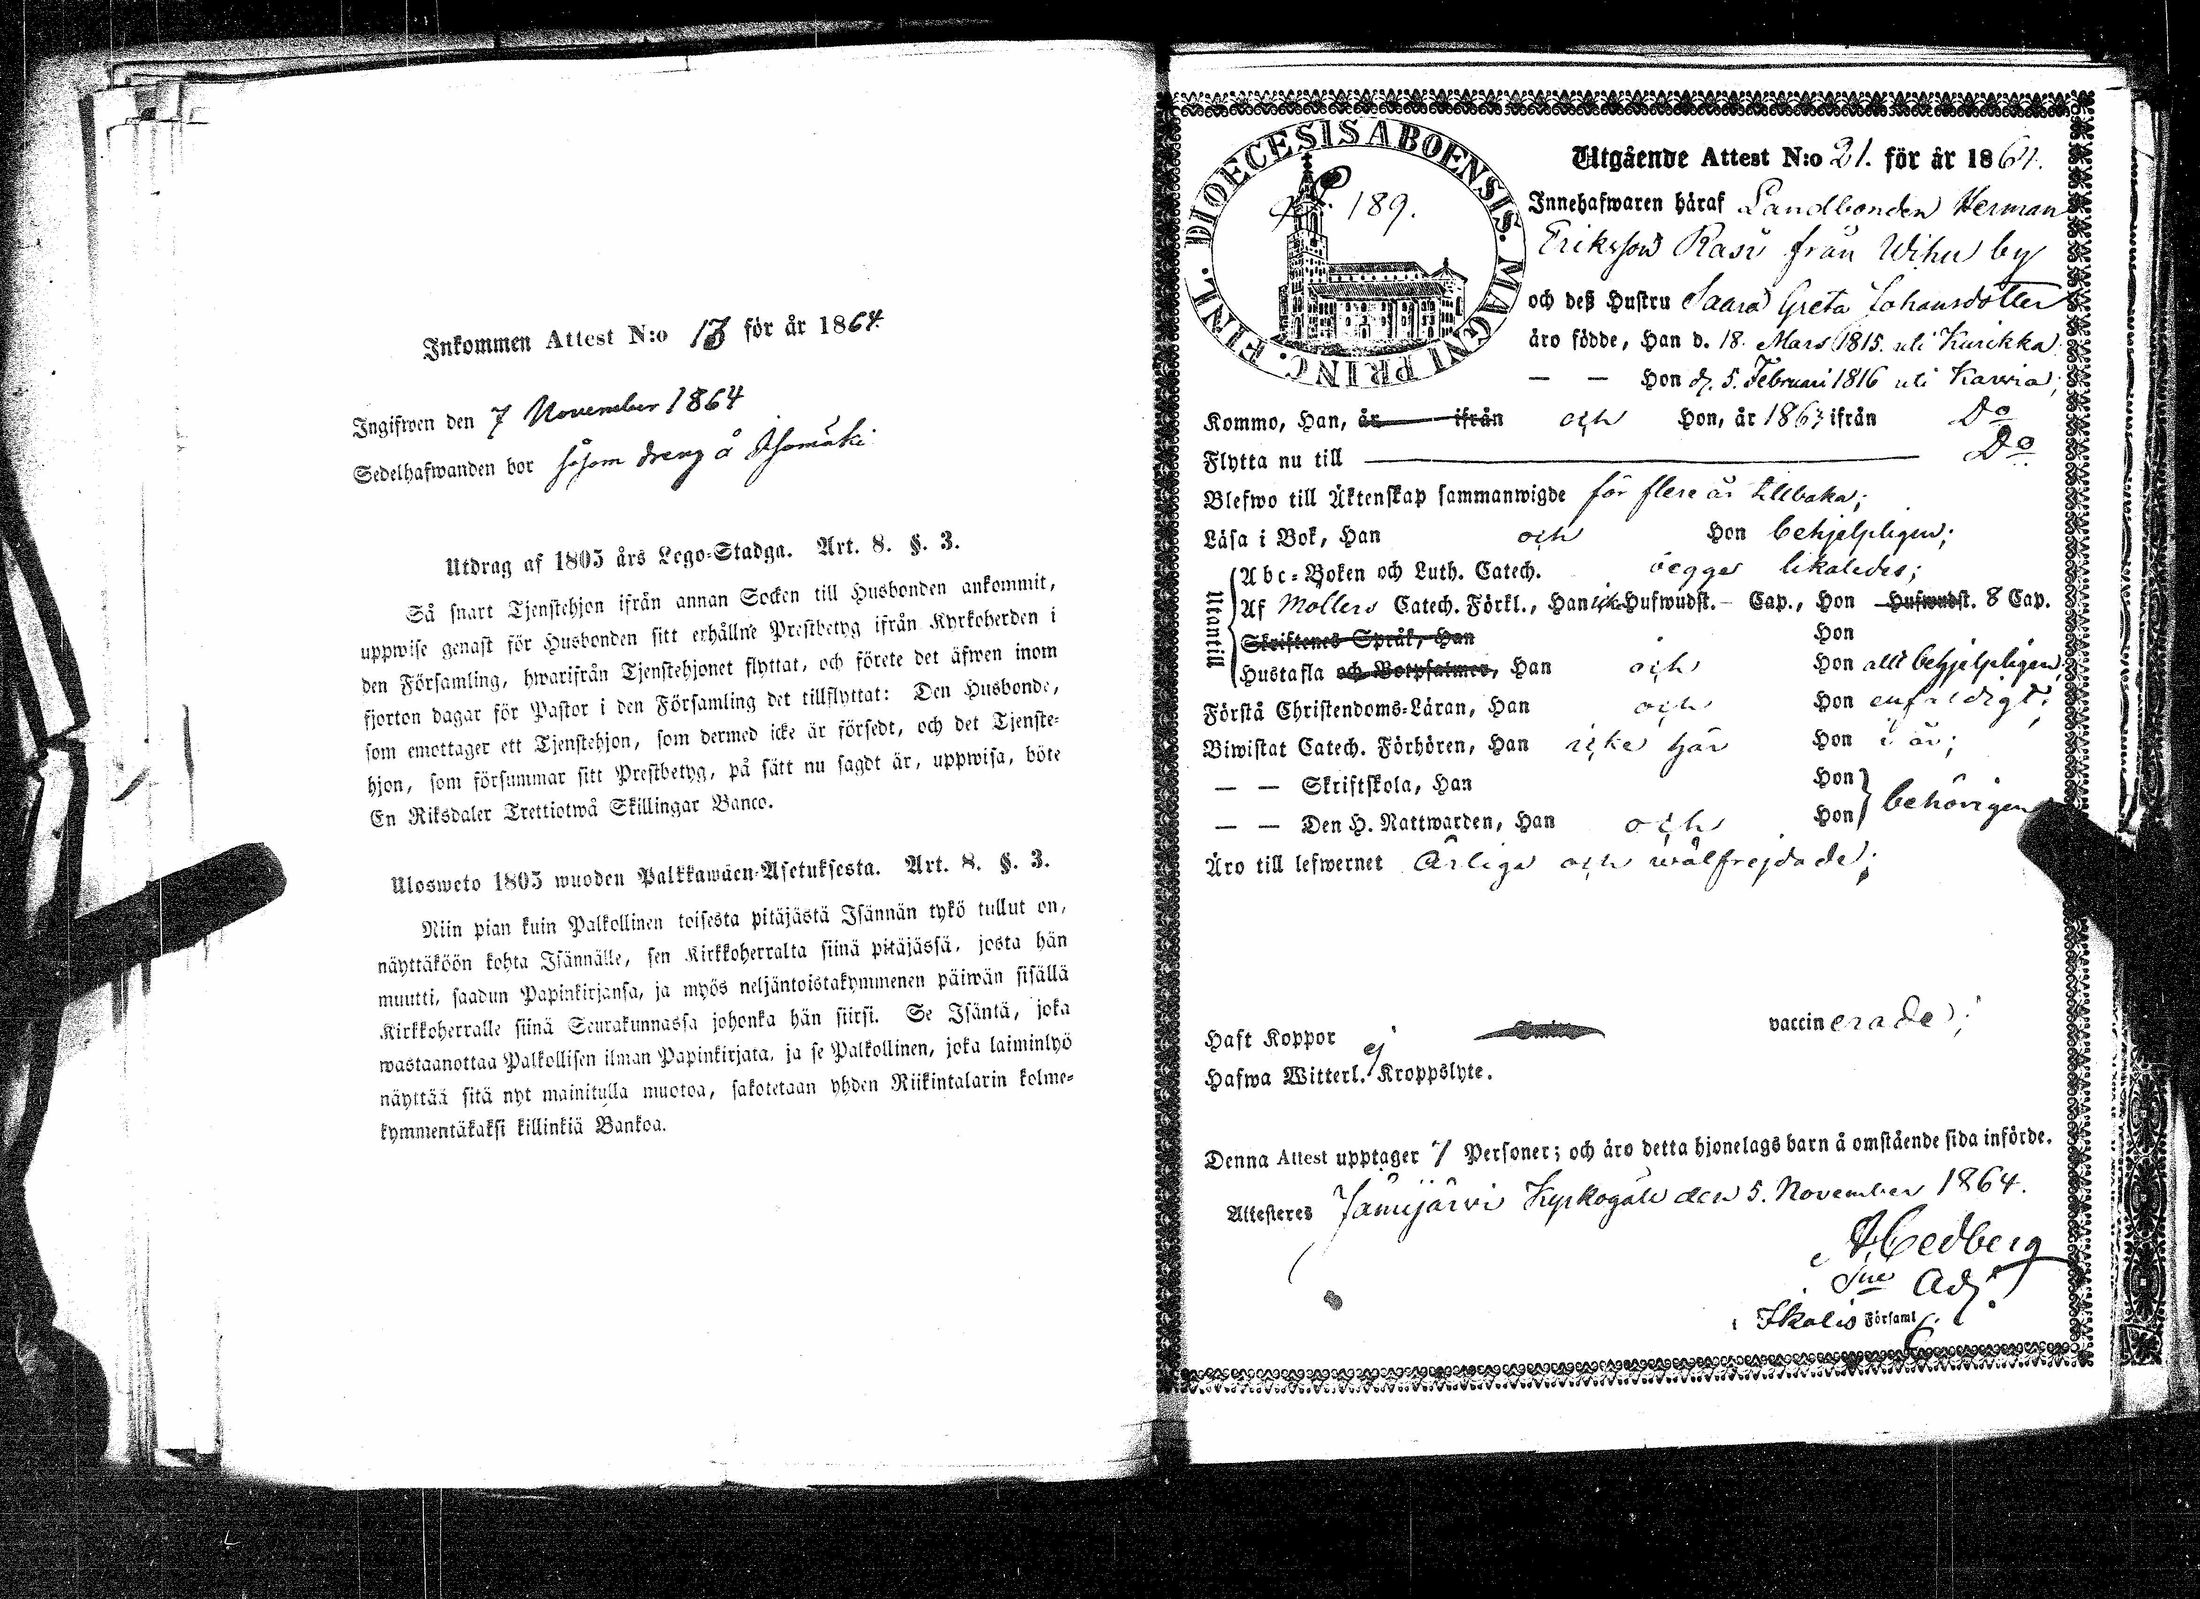 Inkommen Attest N:o 13 för år 1864.
Ingifwen den 7 November 1864
Sedelhafwanden bor såsom dreng å Isomäki
Utdrag af 1805 års Lego-Stadga. Art. 8. §. 3.
Så snart Tjenstehjon ifrån annan Socken till Husbonden ankommit,
uppwise genast för Husbonden sitt erhållne Prestbetyg ifrån Kyrkoherden i
den Församling, hwarifrån Tjenstehjonet flyttat, och förete det äfwen inom
fjorton dagar för Pastor i den Församling det tillflyttat: Den Husbonde,
som emottager ett Tjenstehjon, som dermed icke är försedt, och det Tjenste-
hjon, som försummar sitt Prestbetyg, på sätt nu sagdt är, uppwisa, böte
En Riksdaler Trettiotwå Skillingar Banco.
Ulosweto 1805 wuoden Palkkawäen-Asetuksesta. Art. 8. §. 3.
Niin pian kuin Palkollinen toisesta pitäjästä Isännän tykö tullut on,
näyttäköön kohta Isännälle, sen Kirkkoherralta siinä pitäjässä, josta hän
muutti, saadun Papinkirjansa, ja myös neljäntoistakymmenen päiwän sisällä
Kirkkoherralle siinä Seurakunnassa johonka hän siirsi. Se Isäntä, joka
wastaanottaa Palkollisen ilman Papinkirjata, ja se Palkollinen, joka laiminlyö
näyttää sitä nyt mainitulla muotoa, sakotetaan yhden Riikintalarin kolme-
kymmentäkaksi killinkiä Bankoa.
DIOECESIS ABOENSIS. MAGNI PRINC. FINL.
189.
Utgående Attest N:o 21. för år 1864.
Innehafwaren häraf Landbonden Herman
Eriksson Rasi från Wihu by
och deß Hustru Saara Greta Johansdotter
äro födde, Han d. 18. Mars 1815. uti Kurikka
— — Hon d. 5. Februari 1816 uti Karvia;
Kommo, Han, år ifrån och Hon, år 1863 ifrån Do
Flytta nu till Do
Blefwo till Äktenskap sammanwigde för flere år tillbaka;
Läsa i Bok, Han och Hon behjelpligen;
Utantill
Abc-Boken och Luth. Catech. begge likaledes;
Af Möllers Catech. Förkl., Han icke Hufwudst. – Cap., Hon Hufwudst. 8 Cap.
Skriftenes Språk, Han Hon
Hustafla och Botpsalmer, Han och Hon allt behjelpligen,
Förstå Christendoms-Läran, Han och Hon enfaldigt;
Biwistat Catech. Förhören, Han icke här Hon i år;
— — Skriftskola, Han Hon
— — Den H. Nattwarden, Han och Hon behörigen
Äro till lefwernet Ärliga och wälfrejdade;
Haft Koppor vaccinerade;
Hafwa Witterl. ej Kroppslyte.
Denna Attest upptager 7 Personer; och äro detta hjonelags barn å omstående sida införde.
Attesteres Jämijärvi Kyrkogåle den 5. November 1864.
Cedberg
Adj.
i Ikalis Församl.